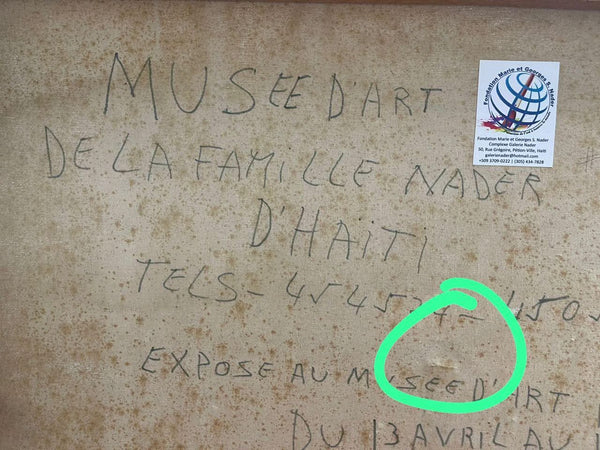 MUSEE D'ART
DE LA FAMILLE NADER
D'HAITI
TELS-
EXPOSE AU MUSEE D'ART
DU 13 AVRIL AU
Fondation Marie et Georges S. Nader
Fondation Marie et Georges S. Nader
Complexe Galerie Nader
50, Rue Grégoire, Pétion-Ville, Haiti
galerienader@hotmail.com
+509 3709-0222 | (305) 434-7828